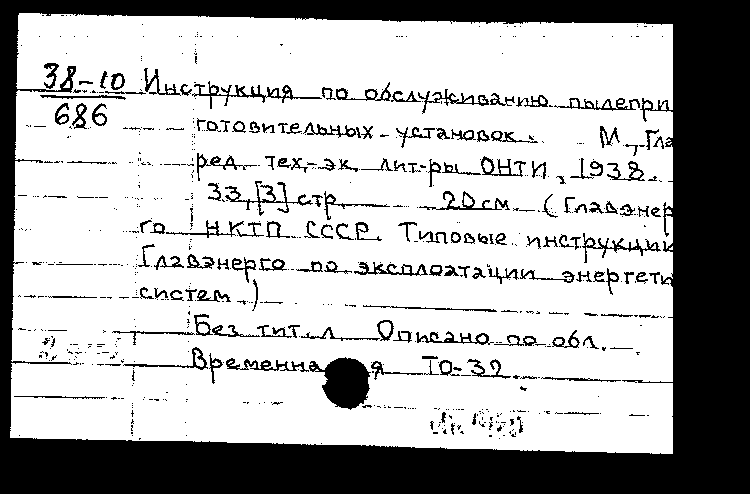 38-10 Инструкция по обслуживанию пылепри
686
готовительных установок. М., Гла
ред. тех.-эк. лит-ры ОНТИ, 1938.
33,[3] стр. 20 см. (Главэнер
го НКТП СССР. Типовые инструкции
Главэнерго по эксплоатации энергети
систем.)
Без тит. л. Описано по обл.
Временная ТО-32.